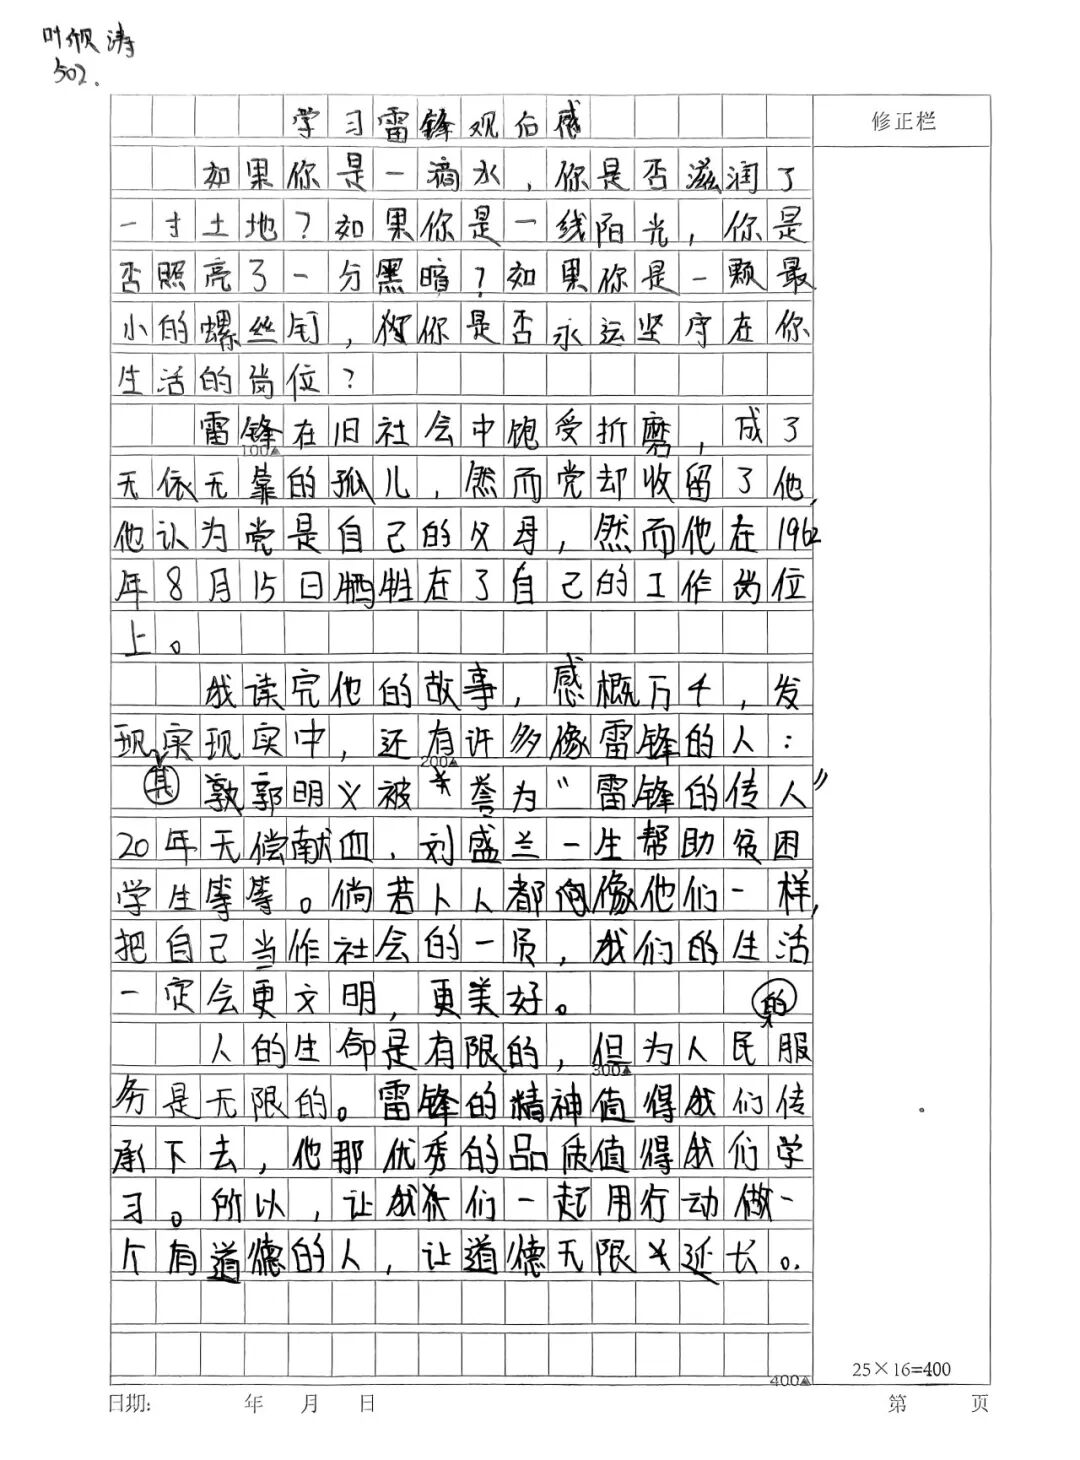 叶 涛
502.
学习雷锋观后感
修正栏
如果你是一滴水，你是否滋润了
一寸土地？如果你是一线阳光，你是
否照亮了一分黑暗？如果你是一颗最
小的螺丝钉，你是否永远坚守在你
生活的岗位？
雷锋在旧社会中饱受折磨，成了
100▲
无依无靠的孤儿，然而党却收留了他，
他认为党是自己的父母，然而他在1962
年8月15日牺牲在了自己的工作岗位
上。
我读完他的故事，感概万千，发
现实现实中，还有许多像雷锋的人：
200▲
其
郭明义被誉为“雷锋的传人”
20年无偿献血，刘盛兰一生帮助贫困
学生等等。倘若人人都像他们一样，
把自己当作社会的一员，我们的生活
一定会更文明，更美好。
的
人的生命是有限的，但为人民服
300▲
务是无限的。雷锋的精神值得我们传
承下去，他那优秀的品质值得我们学
习。所以，让我们一起用行动做一
个有道德的人，让道德无限延长。
400▲
25×16=400
日期: 年 月 日 第 页